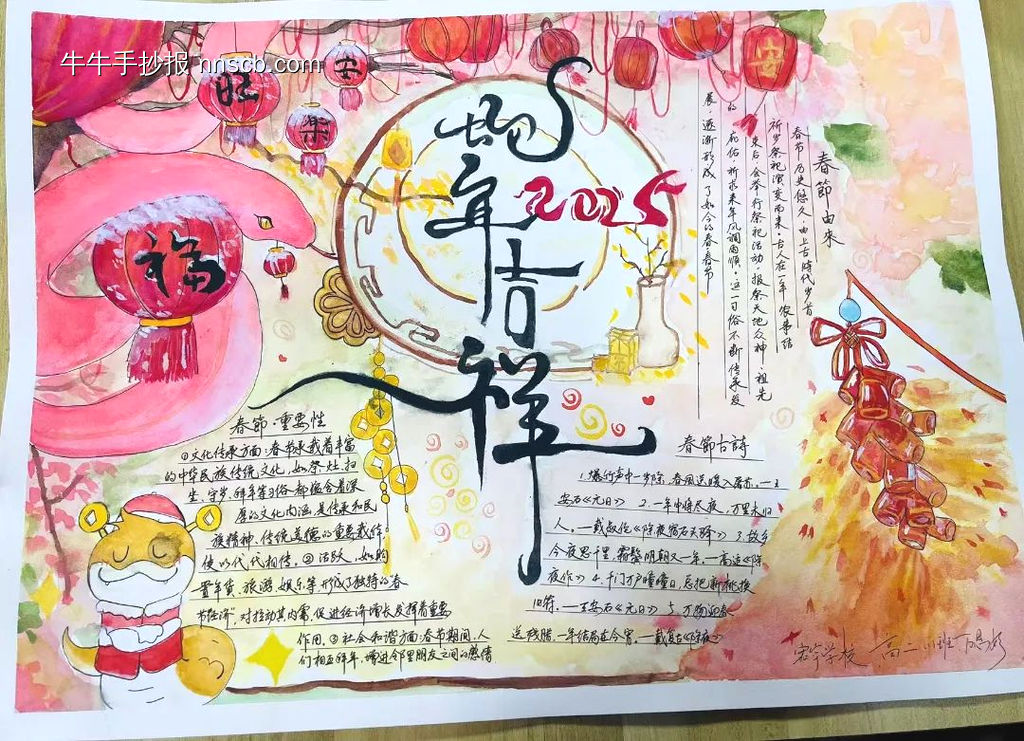 牛牛手抄报 nnscb.com
旺
安
樂
福
安
蛇年吉祥
2025
春節由來
春节历史悠久,由上古時代岁首
祈岁祭祀演变而来。古人在一年农事结
束后,会举行祭祀活动,报祭天地众神、祖先
的庇佑,祈求来年风调雨顺。这一习俗不断传承发
展,逐渐形成了如今的春春节
春節·重要性
①文化传承方面:春节承载着丰富
的中华民族传统文化,如祭灶、扫
尘、守岁、拜年等习俗都蕴含着深
厚的文化内涵,是传承和民
族精神、传统美德的重要载体
使以代代相传。②活跃,如购
置年货、旅游、娱乐等,形成了独特的春
节经济",对拉动其内需,促进经济增长发挥着重要
作用。③社会和谐方面:春节期间,人
们相互拜年,增进邻里朋友之间的感情
春節古詩
1.爆竹声中一岁除,春风送暖入屠苏。—王
安石《元日》 2.一年中将尽夜,万里未归
人。—戴叔伦《除夜宿石头驿》 3.故乡
今夜思千里,霜鬓明朝又一年。—高适《除
夜作》 4.千门万户曈曈日,总把新桃换
旧符。—王安石《元日》 5.万物迎春
送残腊,一年结局在今宵。—戴复古《除夜》
学校 高二 班